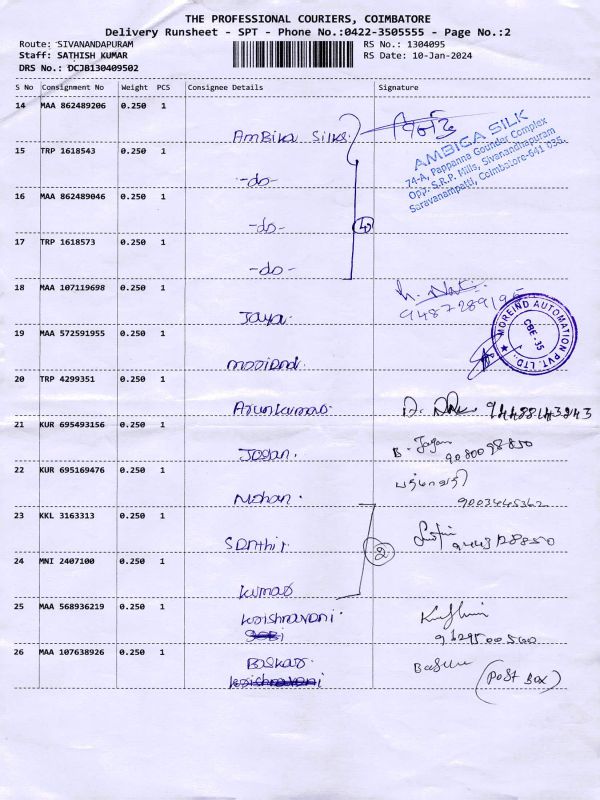 THE PROFESSIONAL COURIERS, COIMBATORE
Delivery Runsheet - SPT - Phone No.:0422-3505555 - Page No.:2
Route: SIVANANDAPURAM
RS No.: 1304095
Staff: SATHISH KUMAR
RS Date: 10-Jan-2024
DRS No.: DCJB130409502
S No Consignment No Weight PCS Consignee Details Signature
14 MAA 862489206 0.250 1
Ambika Silks.
AMBICA SILK
74-A, Pappanna Gounder Complex
Opp. S.R.P. Mills, Sivanandhapuram
Saravanampatti, Coimbatore-641 035.
15 TRP 1618543 0.250 1
-do-
16 MAA 862489046 0.250 1
-do-
4
17 TRP 1618573 0.250 1
-do-
18 MAA 107119698 1 0.250
Jaya.
19 MAA 572591955 0.250 1
MOREIND AUTOMATION PVT. LTD.,
CBE-35
20 TRP 4299351 0.250 1
Arunkumar
21 KUR 695493156 0.250 1
Jagan.
B. Jagan
22 KUR 695169476 0.250 1
Mohan.
9003445362
23 KKL 3163313 0.250 1
Santhi
2
24 MNI 2407100 0.250 1
Kumar
25 MAA 568936219 0.250 1
Krishnaveni.
26 MAA 107638926 0.250 1
Baskar.
(Post Box)